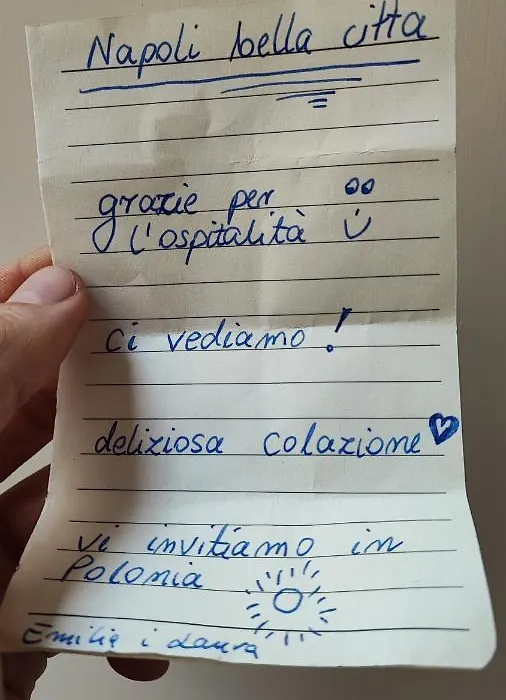 Napoli bella citta
grazie per
l'ospitalità
ci vediamo !
deliziosa colazione
vi invitiamo in
Polonia
Emilia i Laura